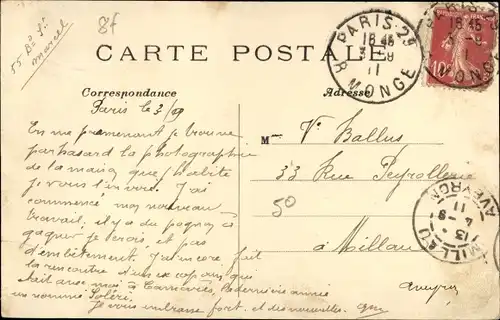 55 Bd St
Marcel
8f
CARTE POSTALE
PARIS-25
R. MONGE
18 45
3 -9
11
PARIS-25
18 45
MONGE
10
Correspondance
Adresse
Paris le 3/9
En me promenant je trouve
par hasard la photographie
de la maison que j'habite
je vous l'envoie. J'ai
commencé mon nouveau
travail. il y a du pognon à
gagner je crois et pas
d'embêtement. J'ai fait
la rencontre d'un copain qui
était avec moi à Camarès, la dernière année
un nommé Soléri.
Je vous embrasse fort. et des nouvelles.
M me Ve Ballus
33 Rue Peyrollerie
50
à Millau
Aveyron
MILLAU
AVEYRON
13
4 -9
11